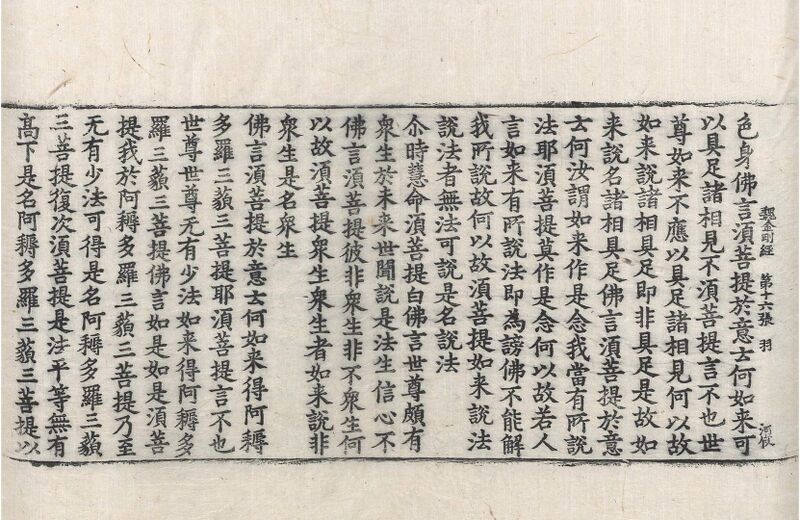 魏金剛經 第十六張 羽
色身佛言湏菩提於意云何如来可
以具足諸相見不湏菩提言不也世
尊如来不應以具足諸相見何以故
如来說諸相具足即非具足是故如
来說名諸相具足佛言湏菩提於意
云何汝謂如来作是念我當有所說
法耶湏菩提莫作是念何以故若人
言如来有所說法即為謗佛不能解
我所說故何以故湏菩提如来說法
說法者無法可說是名說法
尒時慧命湏菩提白佛言世尊頗有
衆生於未来世聞說是法生信心不
佛言湏菩提彼非衆生非不衆生何
以故湏菩提衆生衆生者如来說非
衆生是名衆生
佛言湏菩提於意云何如来得阿耨
多羅三藐三菩提耶湏菩提言不也
世尊世尊无有少法如来得阿耨多
羅三藐三菩提佛言如是如是湏菩
提我於阿耨多羅三藐三菩提乃至
无有少法可得是名阿耨多羅三藐
三菩提復次湏菩提是法平等無有
高下是名阿耨多羅三藐三菩提以